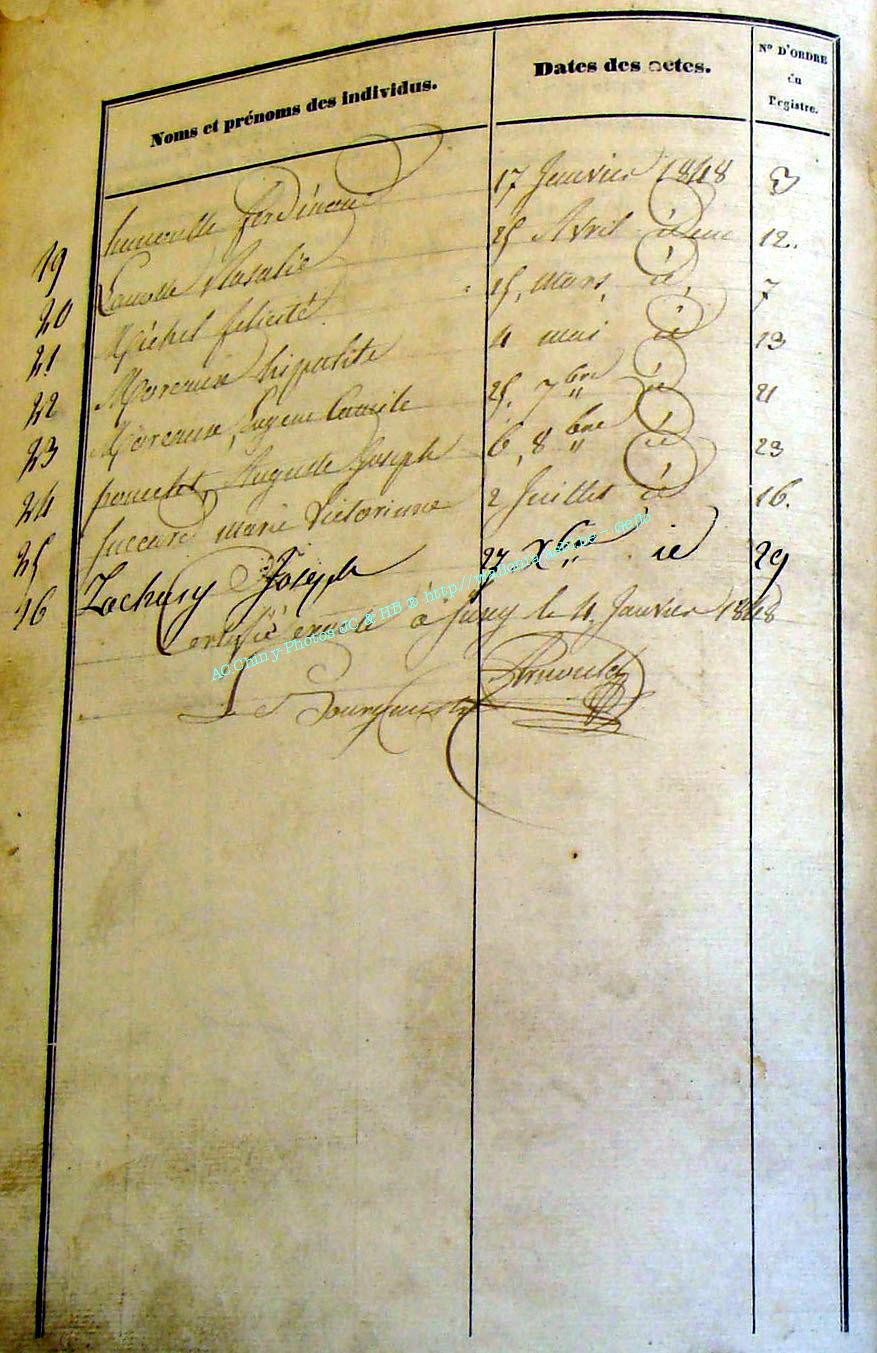 Noms et prénoms des individus. Dates des actes. N° D'ORDRE du Registre.
19 ferdinand 17 Janvier 1848 3
20 Rosalie 25 Avril idem 12.
21 Michel felicité 15, mars, id, 7
22 Moreaux hippolite 4 mai id 13
23 Moreaux, Eugene Camile 25, 7bre id 21
24 poncelet, Auguste Joseph 6, 8bre id 23
25 marie Victorinne 2 Juillet id 16.
26 Zachary Joseph 27 Xbre id 29
Certifié exacte à Suxy le 4, Janvier 1848
Le Bourgmestre
AC Chiny Photos JC & HB ® http://